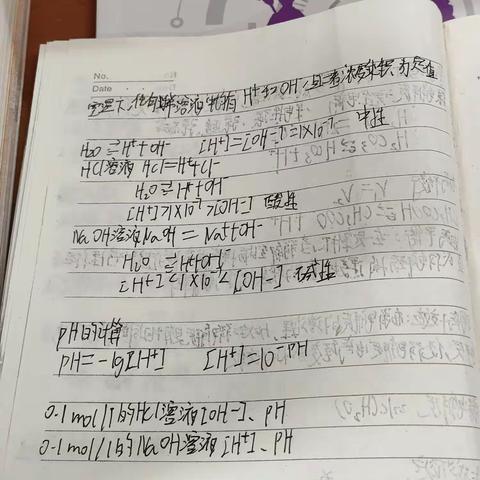 No.
Date
室温下,任何稀溶液中都有 H⁺和OH⁻,且二者浓度乘积为定值
H₂O ⇌ H⁺+OH⁻ [H⁺]=[OH⁻]=1×10⁻⁷ 中性
HCl溶液 HCl=H⁺+Cl⁻
H₂O ⇌ H⁺+OH⁻
[H⁺]>1×10⁻⁷>[OH⁻] 酸性
NaOH溶液 NaOH = Na⁺+OH⁻
H₂O ⇌ H⁺+OH⁻
[H⁺]<1×10⁻⁷<[OH⁻] 碱性
pH的计算
pH=-lg[H⁺] [H⁺]=10⁻ᵖᴴ
0.1mol/l的HCl溶液[OH⁻]、pH
0.1mol/l的NaOH溶液[H⁺]、pH